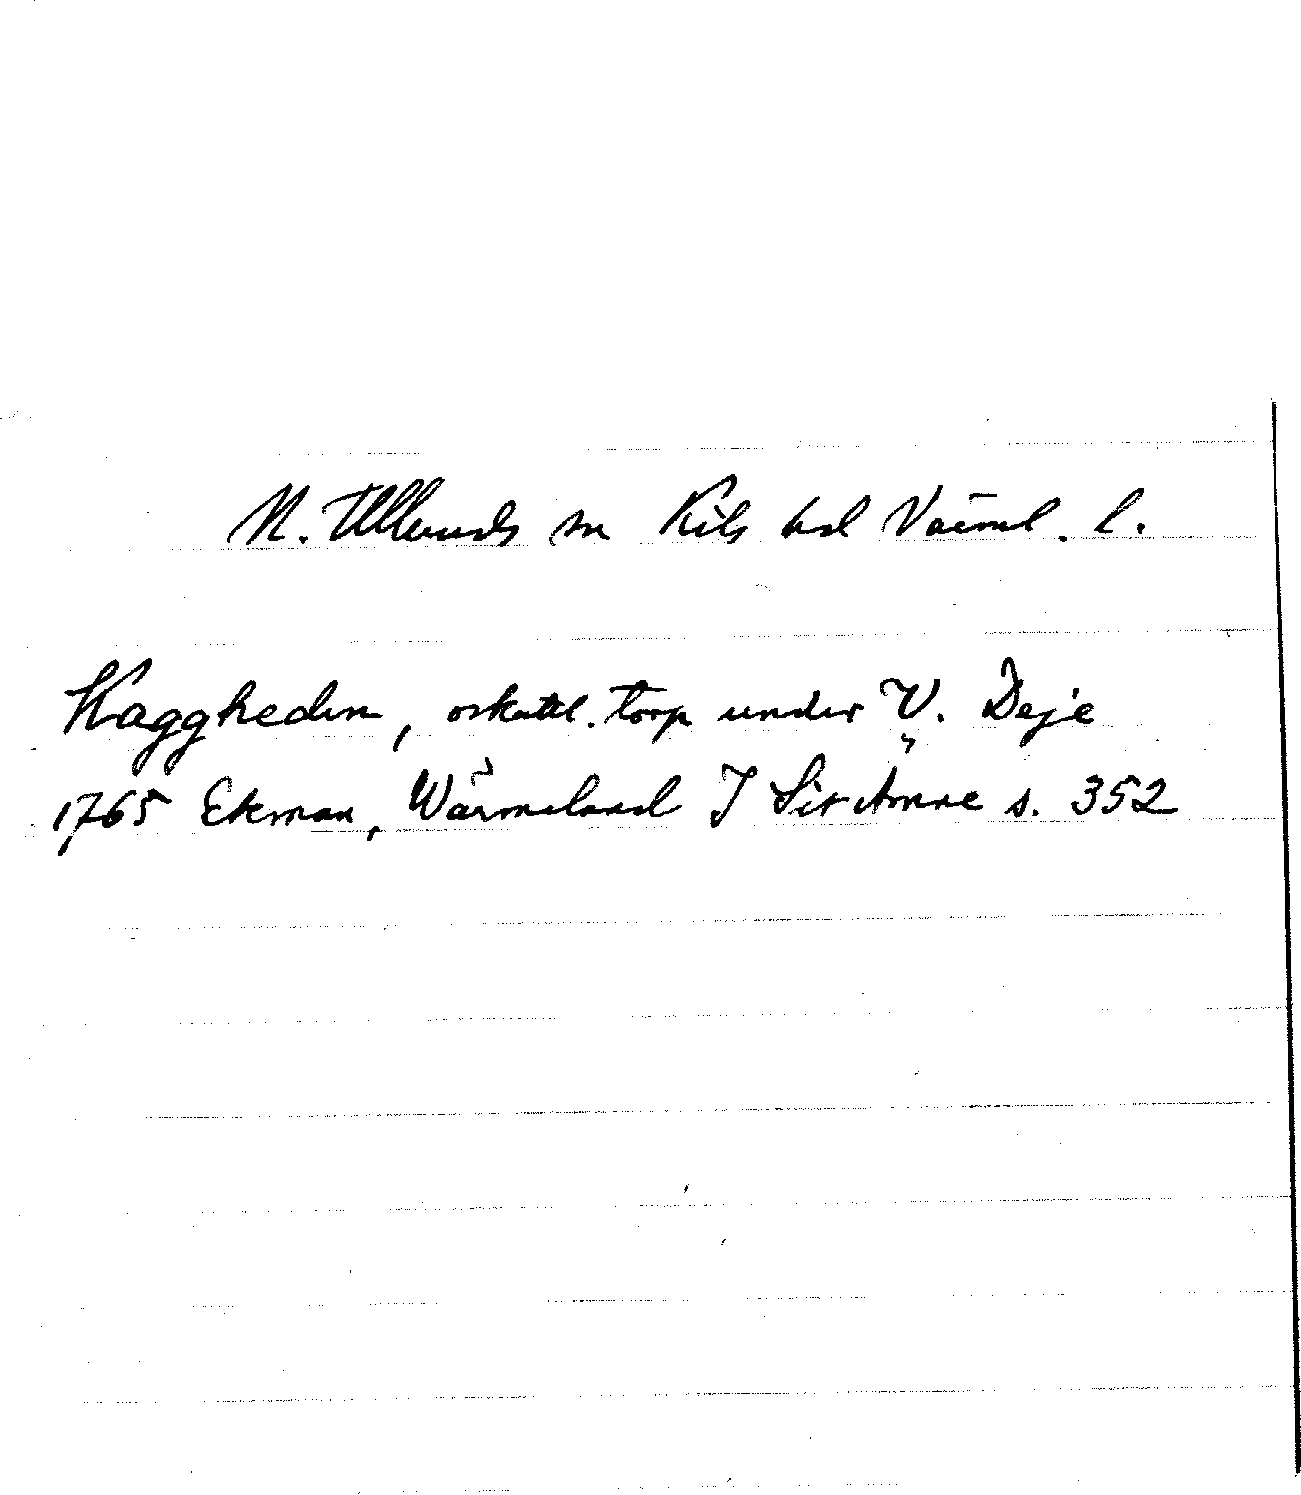 N. Ulleruds sn Kils hd Värml. l.
Haggheden, oskattl. torp under V. Deje
1765 Ekman, Wärmeland I Sit Ämne s. 352